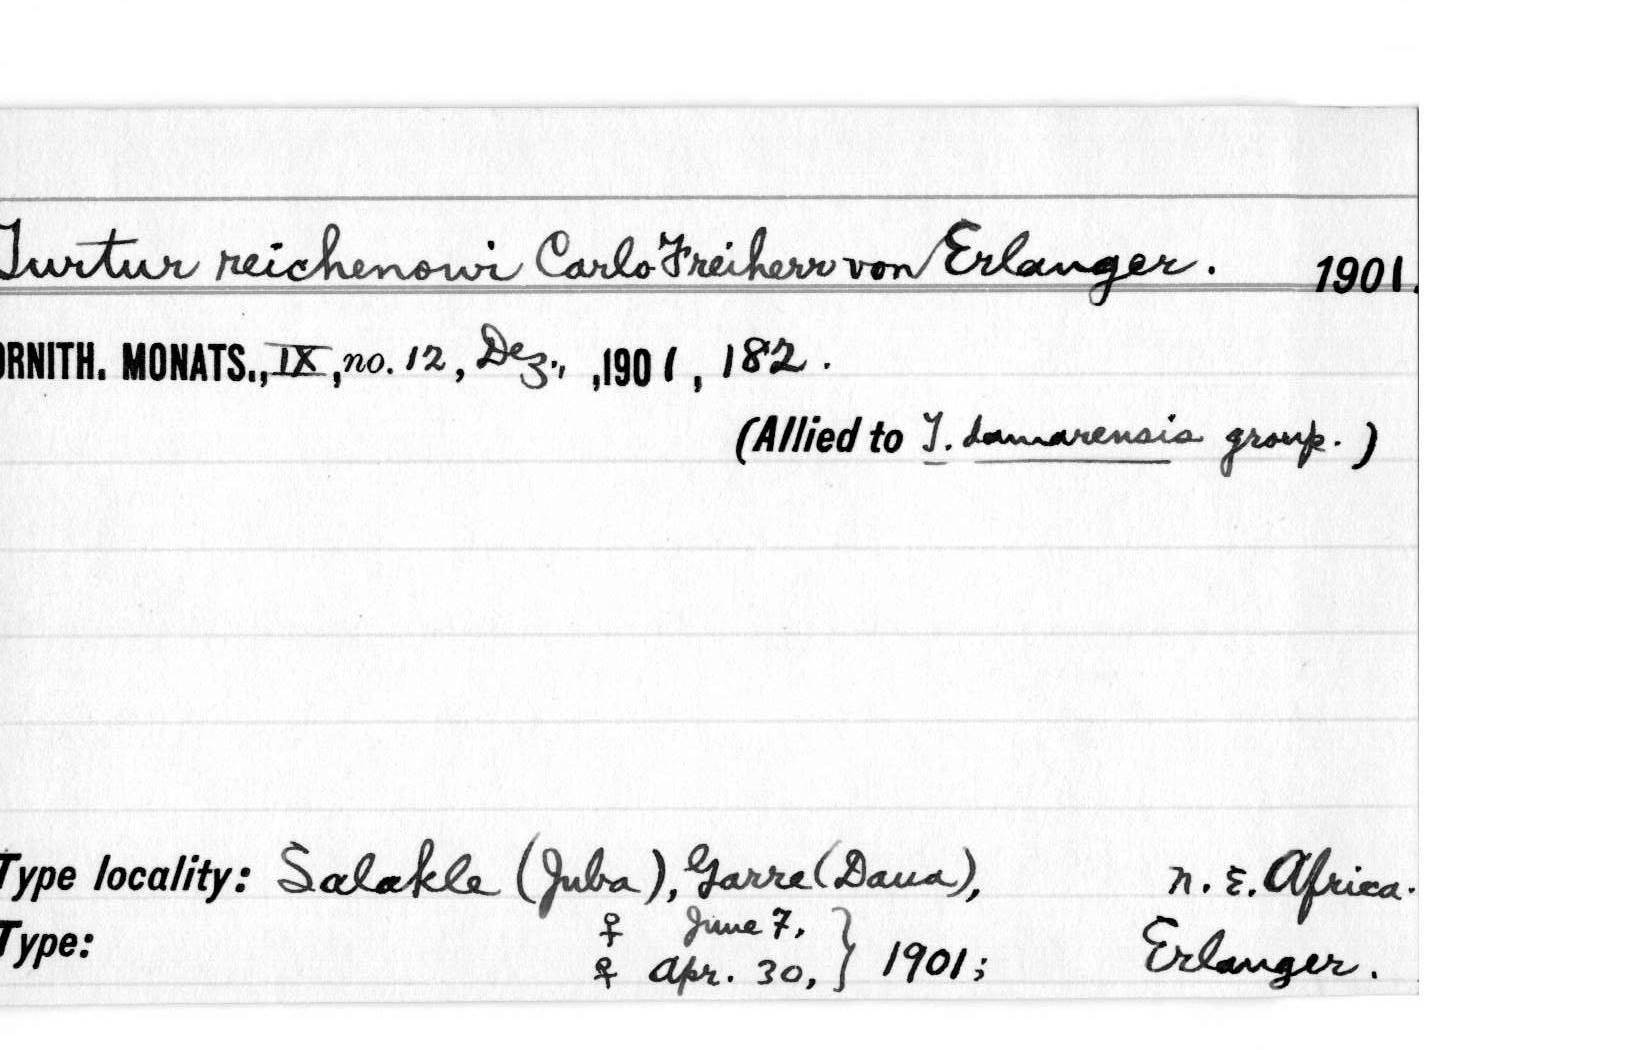 Turtur reichenowi Carlo Freiherr von Erlanger. 1901.
ORNITH. MONATS., IX, no. 12, Dez., ,1901, 182.
(Allied to T. damarensis group.)
Type locality: Salakle (Juba), Garre (Daua), n. E. Africa.
Type: ♀ June 7,
♀ Apr. 30, } 1901; Erlanger.